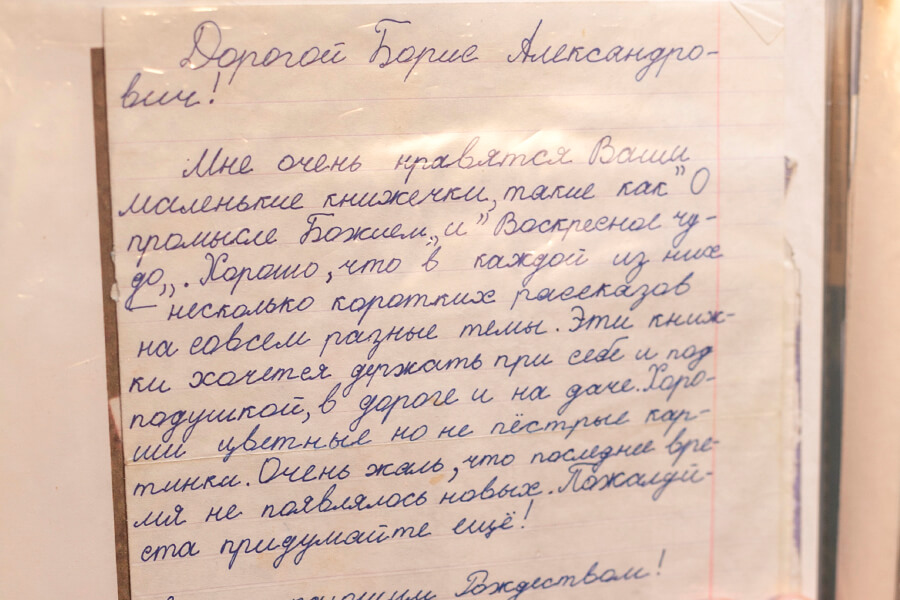 Дорогой Борис Александро-
вич!
Мне очень нравятся Ваши
маленькие книжечки, такие как "О
промысле Божием„ и "Воскресное чу-
до„. Хорошо, что в каждой из них
несколько коротких рассказов
на совсем разные темы. Эти книж-
ки хочется держать при себе и под
подушкой, в дороге и на даче. Хоро-
ши цветные но не пёстрые кар-
тинки. Очень жаль, что последнее вре-
мя не появлялось новых. Пожалуй-
ста придумайте ещё!
Рождеством!